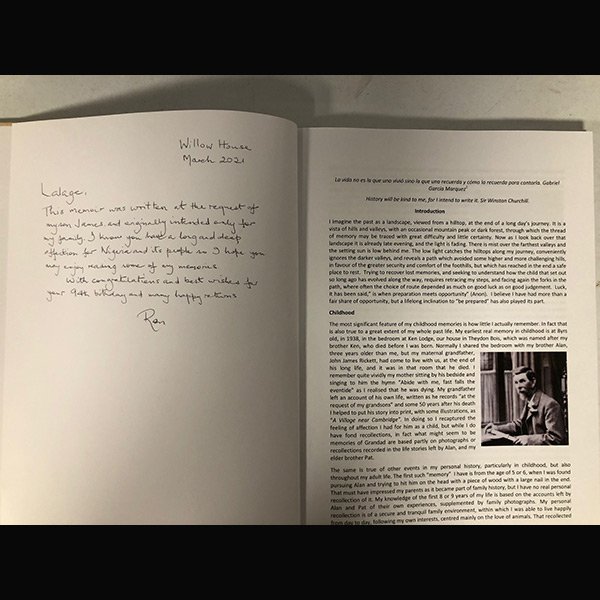 Willow House
March 2021
Lalage,
This memoir was written at the request of
my son James, and originally intended only for
my family. I know you have a long and deep
affection for Nigeria and its people so I hope you
may enjoy reading some of my memories
With congratulations and best wishes for
your 94th birthday and many happy returns
La vida no es la que uno vivió sino la que uno recuerda y cómo la recuerda para contarla. Gabriel
Garcia Marquez
History will be kind for me, for I intend to write it. Sir Winston Churchill.
Introduction
I imagine the past as a landscape, viewed from a hilltop, at the end of a long day's journey. It is a
vista of hills and valleys, with an occasional mountain peak or dark forest, through which the thread
of memory may be traced with great difficulty and little certainty. Now as I look back over that
landscape it is already late evening, and the light is fading. There is mist over the farthest valleys and
the setting sun is low behind me. The low light catches the hilltops along my journey, conveniently
ignores the darker valleys, and reveals a path which avoided some higher and more challenging hills,
in favour of the greater security and comfort of the foothills, but which has reached in the end a safe
place to rest. Trying to recover lost memories, and seeking to understand how the child that set out
so long ago has evolved along the way, requires retracing my steps, and facing again the forks in the
path, where often the choice of route depended as much on good luck as on good judgement. Luck,
it has been said," is when preparation meets opportunity" (Anon). I believe I have had more than a
fair share of opportunity, but a lifelong inclination to "be prepared" has also played its part.
Childhood
The most significant feature of my childhood memories is how little I actually remember. In fact that
is also true to a great extent of my whole past life. My earliest real memory in childhood is at 8yrs
old, in 1938, in the bedroom at Ken Lodge, our house in Theydon Bois, which was named after my
brother Ken, who died before I was born. Normally I shared the bedroom with my brother Alan,
three years older than me, but my maternal grandfather,
John James Rickett, had come to live with us, at the end of
his long life, and it was in that room that he died. I
remember quite vividly my mother sitting by his bedside and
singing to him the hymn "Abide with me, fast falls the
eventide" as I realised that he was dying. My grandfather
left an account of his own life, written as he records "at the
request of my grandsons" and some 50 years after his death
I helped to put his story into print, with some illustrations, as
"A Village near Cambridge". In doing so I recaptured the
feeling of affection I had for him as a child, but while I do
have fond recollections, in fact what might seem to be
memories of Grandad are based partly on photographs or
recollections recorded in the life stories left by Alan, and my
elder brother Pat.
The same is true of other events in my personal history, particularly in childhood, but also
throughout my adult life. The first such "memory" I have is from the age of 5 or 6, when I was found
pursuing Alan and trying to hit him on the head with a piece of wood with a large nail in the end.
That must have impressed my parents as it became part of family history, but I have no real personal
recollection of it. My knowledge of the first 8 or 9 years of my life is based on the accounts left by
Alan and Pat of their own experiences, supplemented by family photographs. My personal
recollection is of a secure and tranquil family environment, within which I was able to live happily
from day to day, following my own interests, centred mainly on the love of animals. That recollected